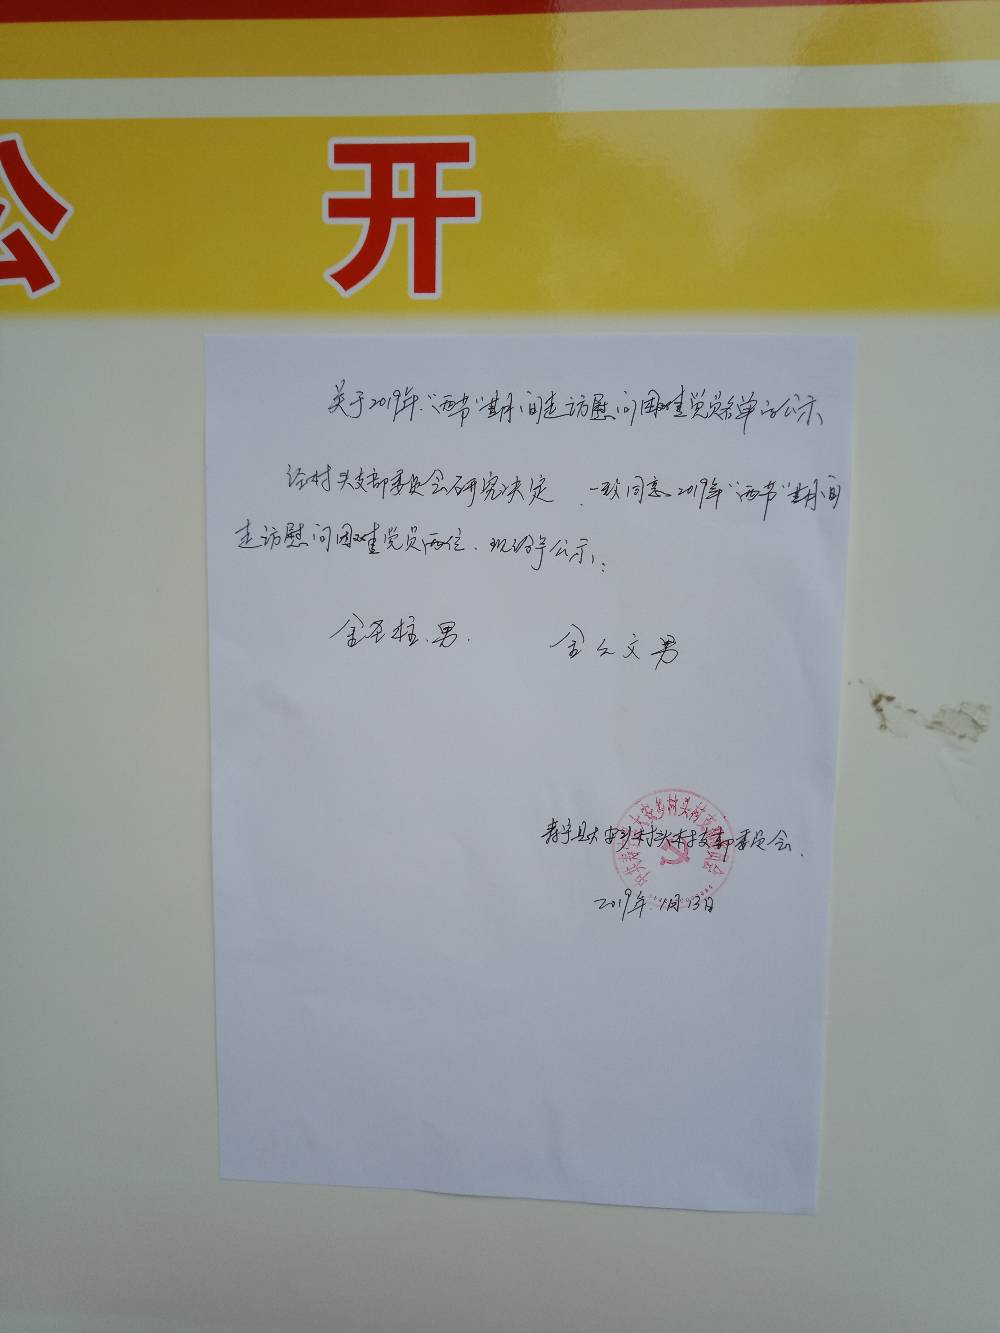 公 开
关于2019年"两节"期间走访慰问困难党员名单的公示
经村头支部委员会研究决定，一致同意2019年"两节"期间
走访慰问困难党员两位，现给予公示：
金圣柱.男. 金久文 男
寿宁县大安乡村头村支部委员会.
2019年1月13日